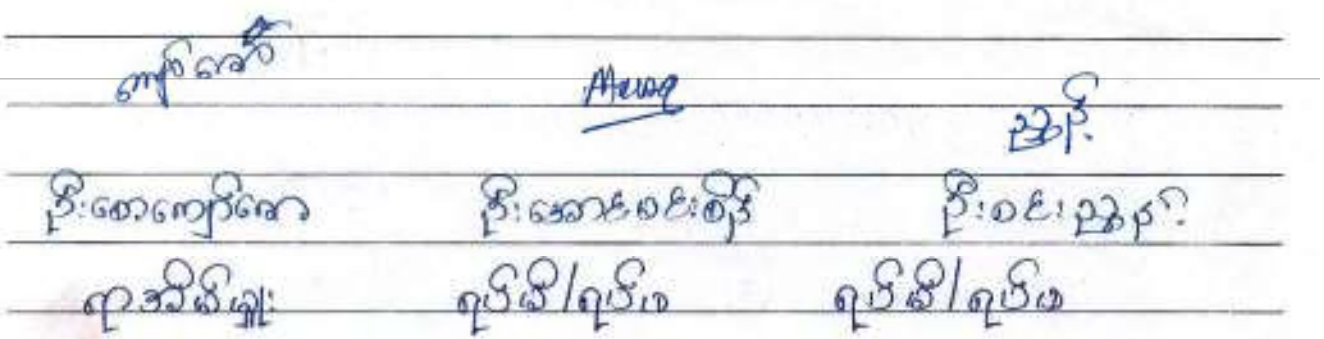 ကျော်ဇော
ညွန့်
ဦးစောကျော်ဇော ဦးအောင်ဝင်းစိုး ဦးဝင်းညွန့်
ရာအိမ်မှူး ရပ်မိ/ရပ်ဖ ရပ်မိ/ရပ်ဖ